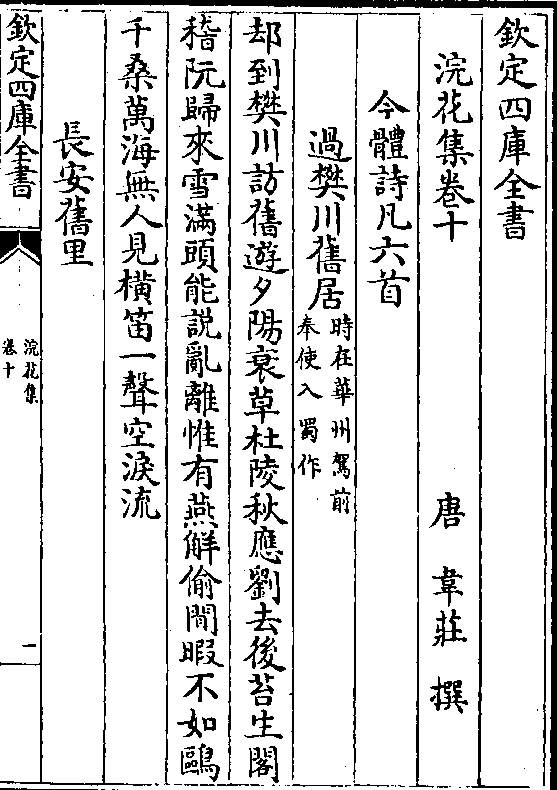 欽定四庫全書
浣花集卷十
唐 韋莊 撰
今體詩凡六首
過樊川舊居時在華州駕前
奉使入蜀作
却到樊川訪舊遊夕陽衰草杜陵秋應劉去後苔生閣
稽阮歸來雪滿頭能說亂離惟有燕解偷閒暇不如鷗
千桑萬海無人見橫笛一聲空淚流
長安舊里
欽定四庫全書
浣花集
卷十
一